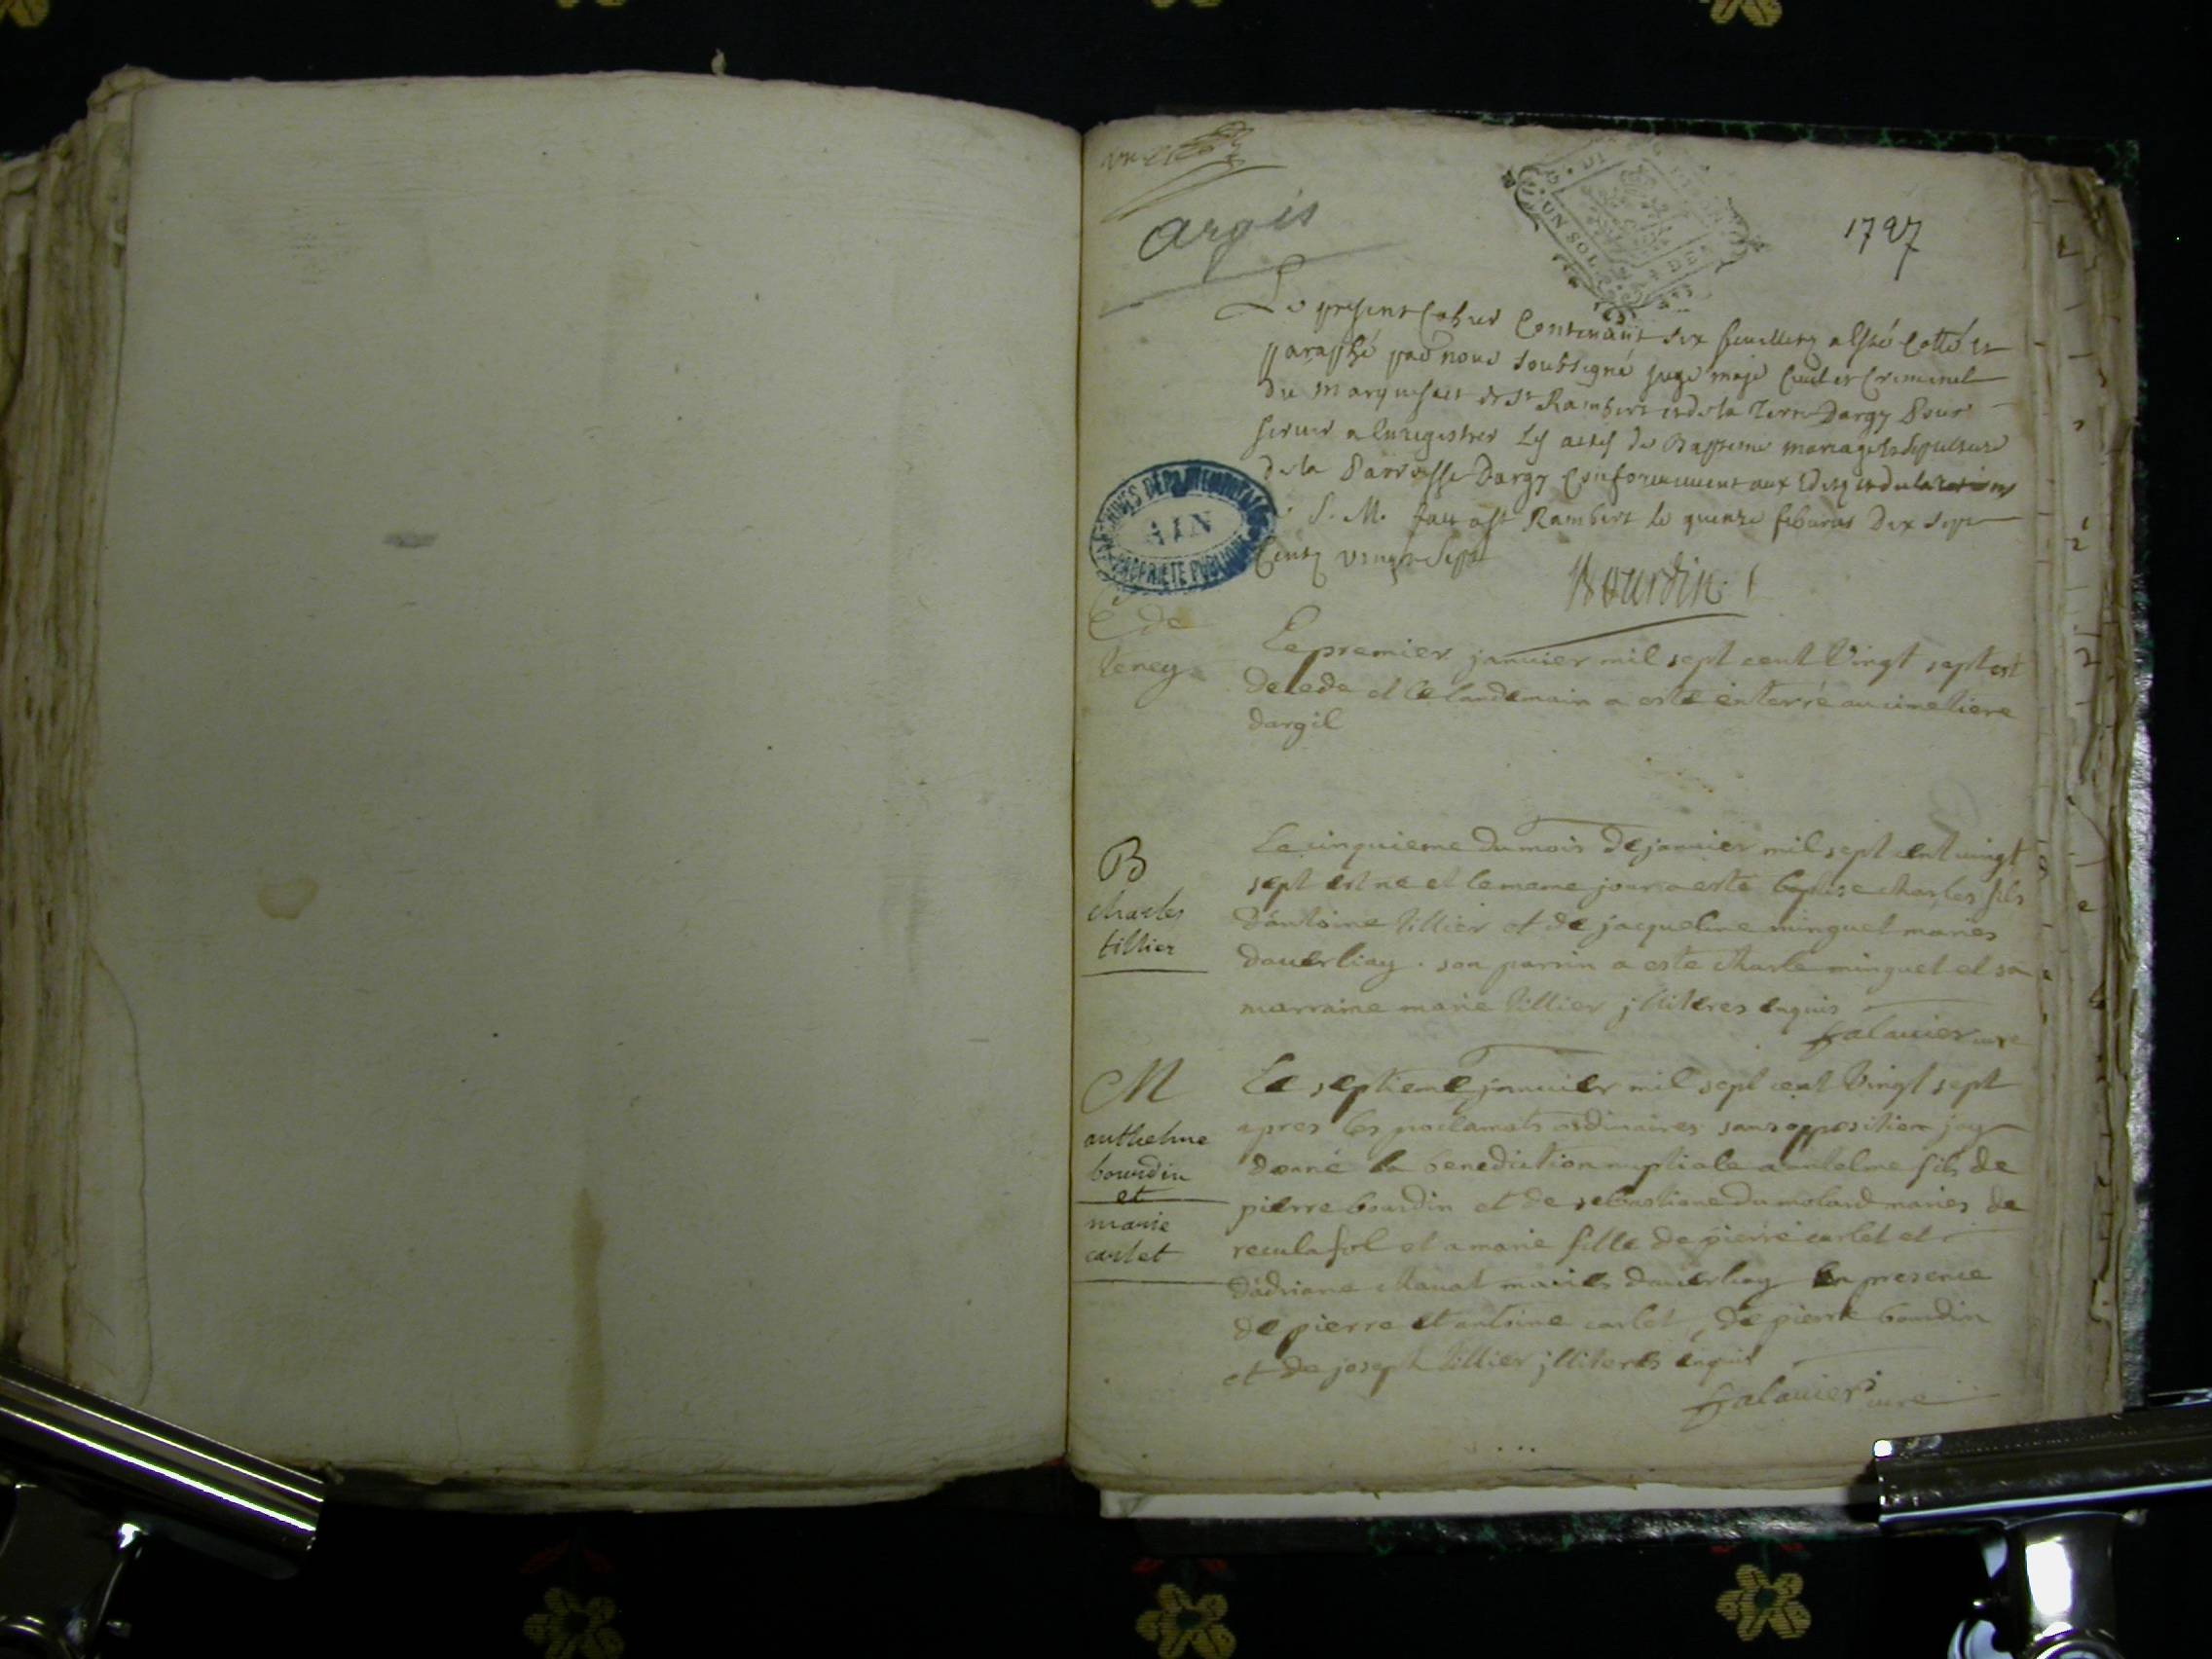 argis
UN SOL
1727
Le present Cahier Contenant six feuillets a esté Cotté et
paraphé par nous soubsigné juge maje Civil et Criminel
du Marquisat de St Rambert et de la Terre Dargy Pour
servir a Enregistrer Les actes de Bapteme mariage et sepulture
de la Parroisse Dargy Conformement aux Edits et declarations
S. M. fait a St Rambert le quinze febvrier Dix sept
Cents vingt Sept
Bourdin
ARCHIVES DEPARTEMENTALES
AIN
PROPRIETE PUBLIQUE
de
teney
Le premier janvier mil sept cent Vingt sept est
decede et le landemain a esté enterré au cimetiere
dargil
B
charles
tillier
Le cinquieme du mois de janvier mil sept cent vingt
sept est né et le meme jour a esté baptise charles fils
d'antoine tillier et de jacqueline minguet mariés
dauerliay. son parrin a este charle minguet et sa
marraine marie tillier jlliteres enquis
falavier curé
M
anthelme
bourdin
et
marie
carlet
Le septieme janvier mil sept cent Vingt sept
apres les proclamats ordinaires sans opposition jay
donné la benediction nuptiale a antelme fils de
pierre bourdin et de sebastiane dumolard mariés de
reculafol et a marie fille de pierre carlet et
d'adriane chavat mariés dauerliay En presence
de pierre et antoine carlet, de pierre bourdin
et de joseph tillier jlliterés enquis
falavier curé